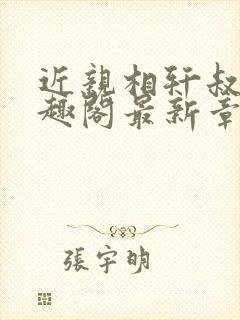 近親相轩叔
趣阁最新章
張宇明